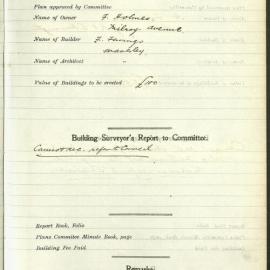 Plan approved by Committee
Name of Owner F. Holmes
Kilroy Avenue
Name of Builder F.
Name of Architect "
Value of Buildings to be erected £100
Building Surveyor's Report to Committee.
Cannot rec. refer to Council
Report Book, Folio
Plans Committee Minute Book, page
Building Fee Paid
Remarks